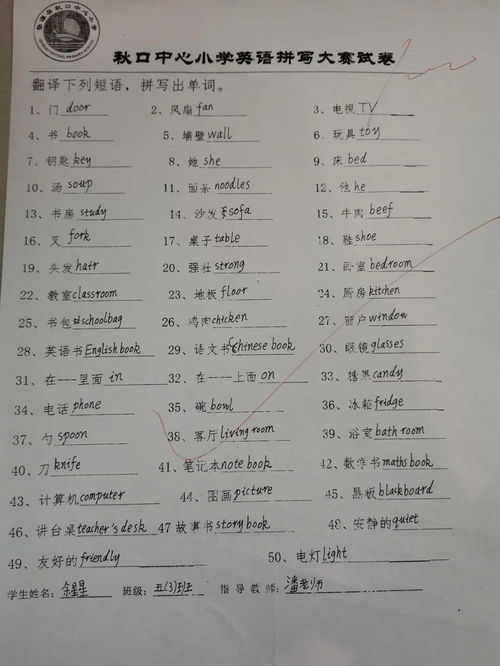 婺源县秋口中心小学
秋口中心小学英语拼写大赛试卷
翻译下列短语，拼写出单词。
1、门 door 2、风扇 fan 3、电视 TV
4、书 book 5、墙壁 wall 6、玩具 toy
7、钥匙 key 8、她 she 9、床 bed
10、汤 soup 11、面条 noodles 12、他 he
13、书房 study 14、沙发 sofa 15、牛肉 beef
16、叉 fork 17、桌子 table 18、鞋 shoe
19、头发 hair 20、强壮 strong 21、卧室 bedroom
22、教室 classroom 23、地板 floor 24、厨房 kitchen
25、书包 schoolbag 26、鸡肉 chicken 27、窗户 window
28、英语书 English book 29、语文书 Chinese book 30、眼镜 glasses
31、在----里面 in 32、在----上面 on 33、糖果 candy
34、电话 phone 35、碗 bowl 36、冰箱 fridge
37、勺 spoon 38、客厅 living room 39、浴室 bath room
40、刀 knife 41、笔记本 note book 42、数学书 maths book
43、计算机 computer 44、图画 picture 45、黑板 blackboard
46、讲台桌 teacher's desk 47 故事书 story book 48、安静的 quiet
49、友好的 friendly 50、电灯 light
学生姓名：余星星 班级：五(3)班 指导教师：潘老师